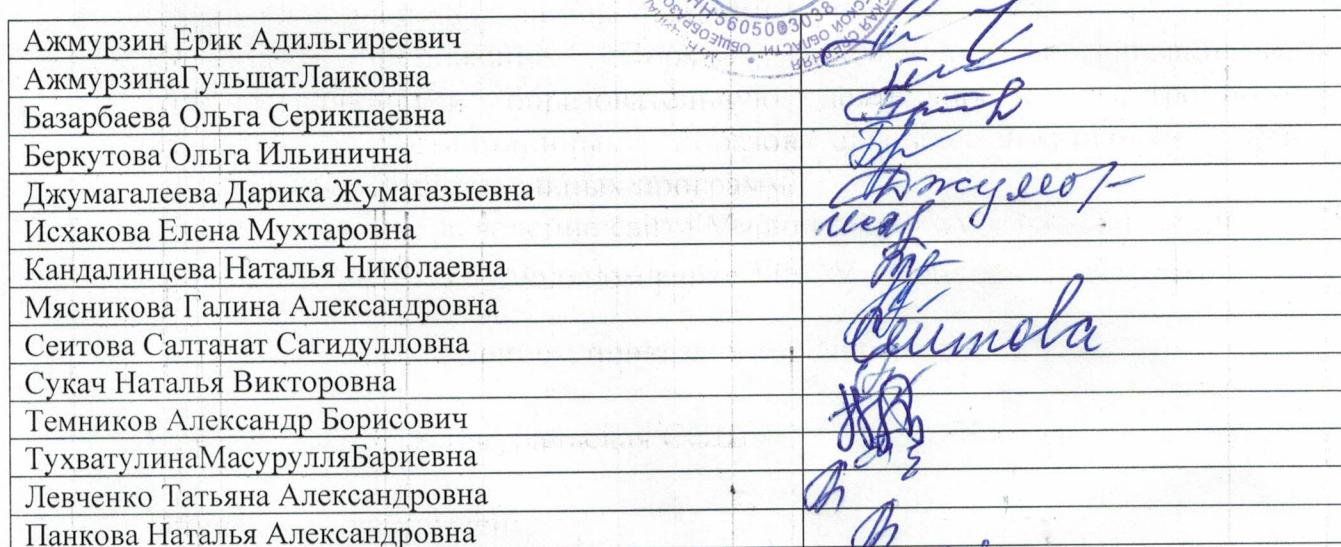 5605003038
Ажмурзин Ерик Адильгиреевич
АжмурзинаГульшатЛаиковна
Базарбаева Ольга Серикпаевна
Беркутова Ольга Ильинична
Джумагалеева Дарика Жумагазыевна
Исхакова Елена Мухтаровна
Кандалинцева Наталья Николаевна
Мясникова Галина Александровна
Сеитова Салтанат Сагидулловна
Сеитова
Сукач Наталья Викторовна
Темников Александр Борисович
ТухватулинаМасурулляБариевна
Левченко Татьяна Александровна
Панкова Наталья Александровна